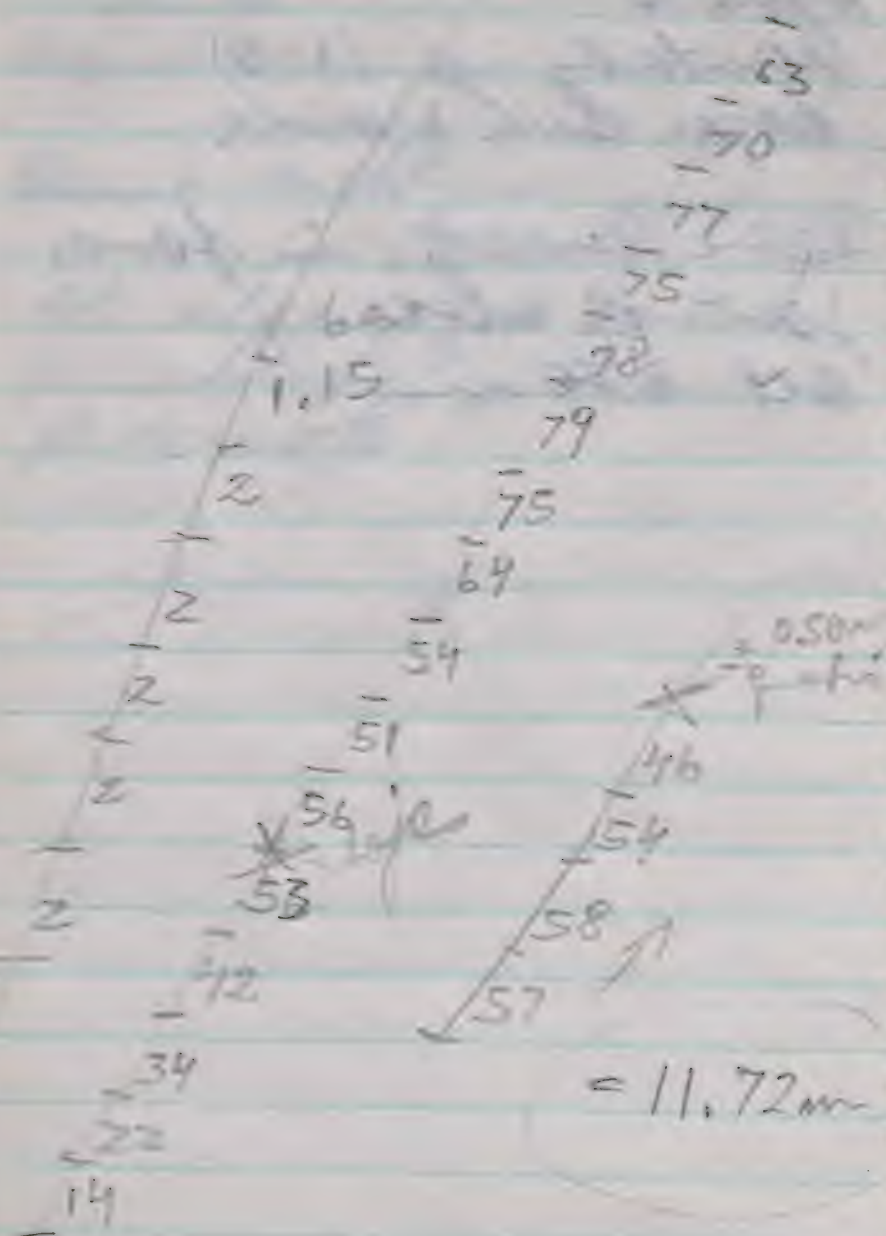 63
70
77
75
78
79
75
64
54
51
56
53
42
34
22
14
1.15
2
2
2
2
2
46
54
58
57
= 11.72 m